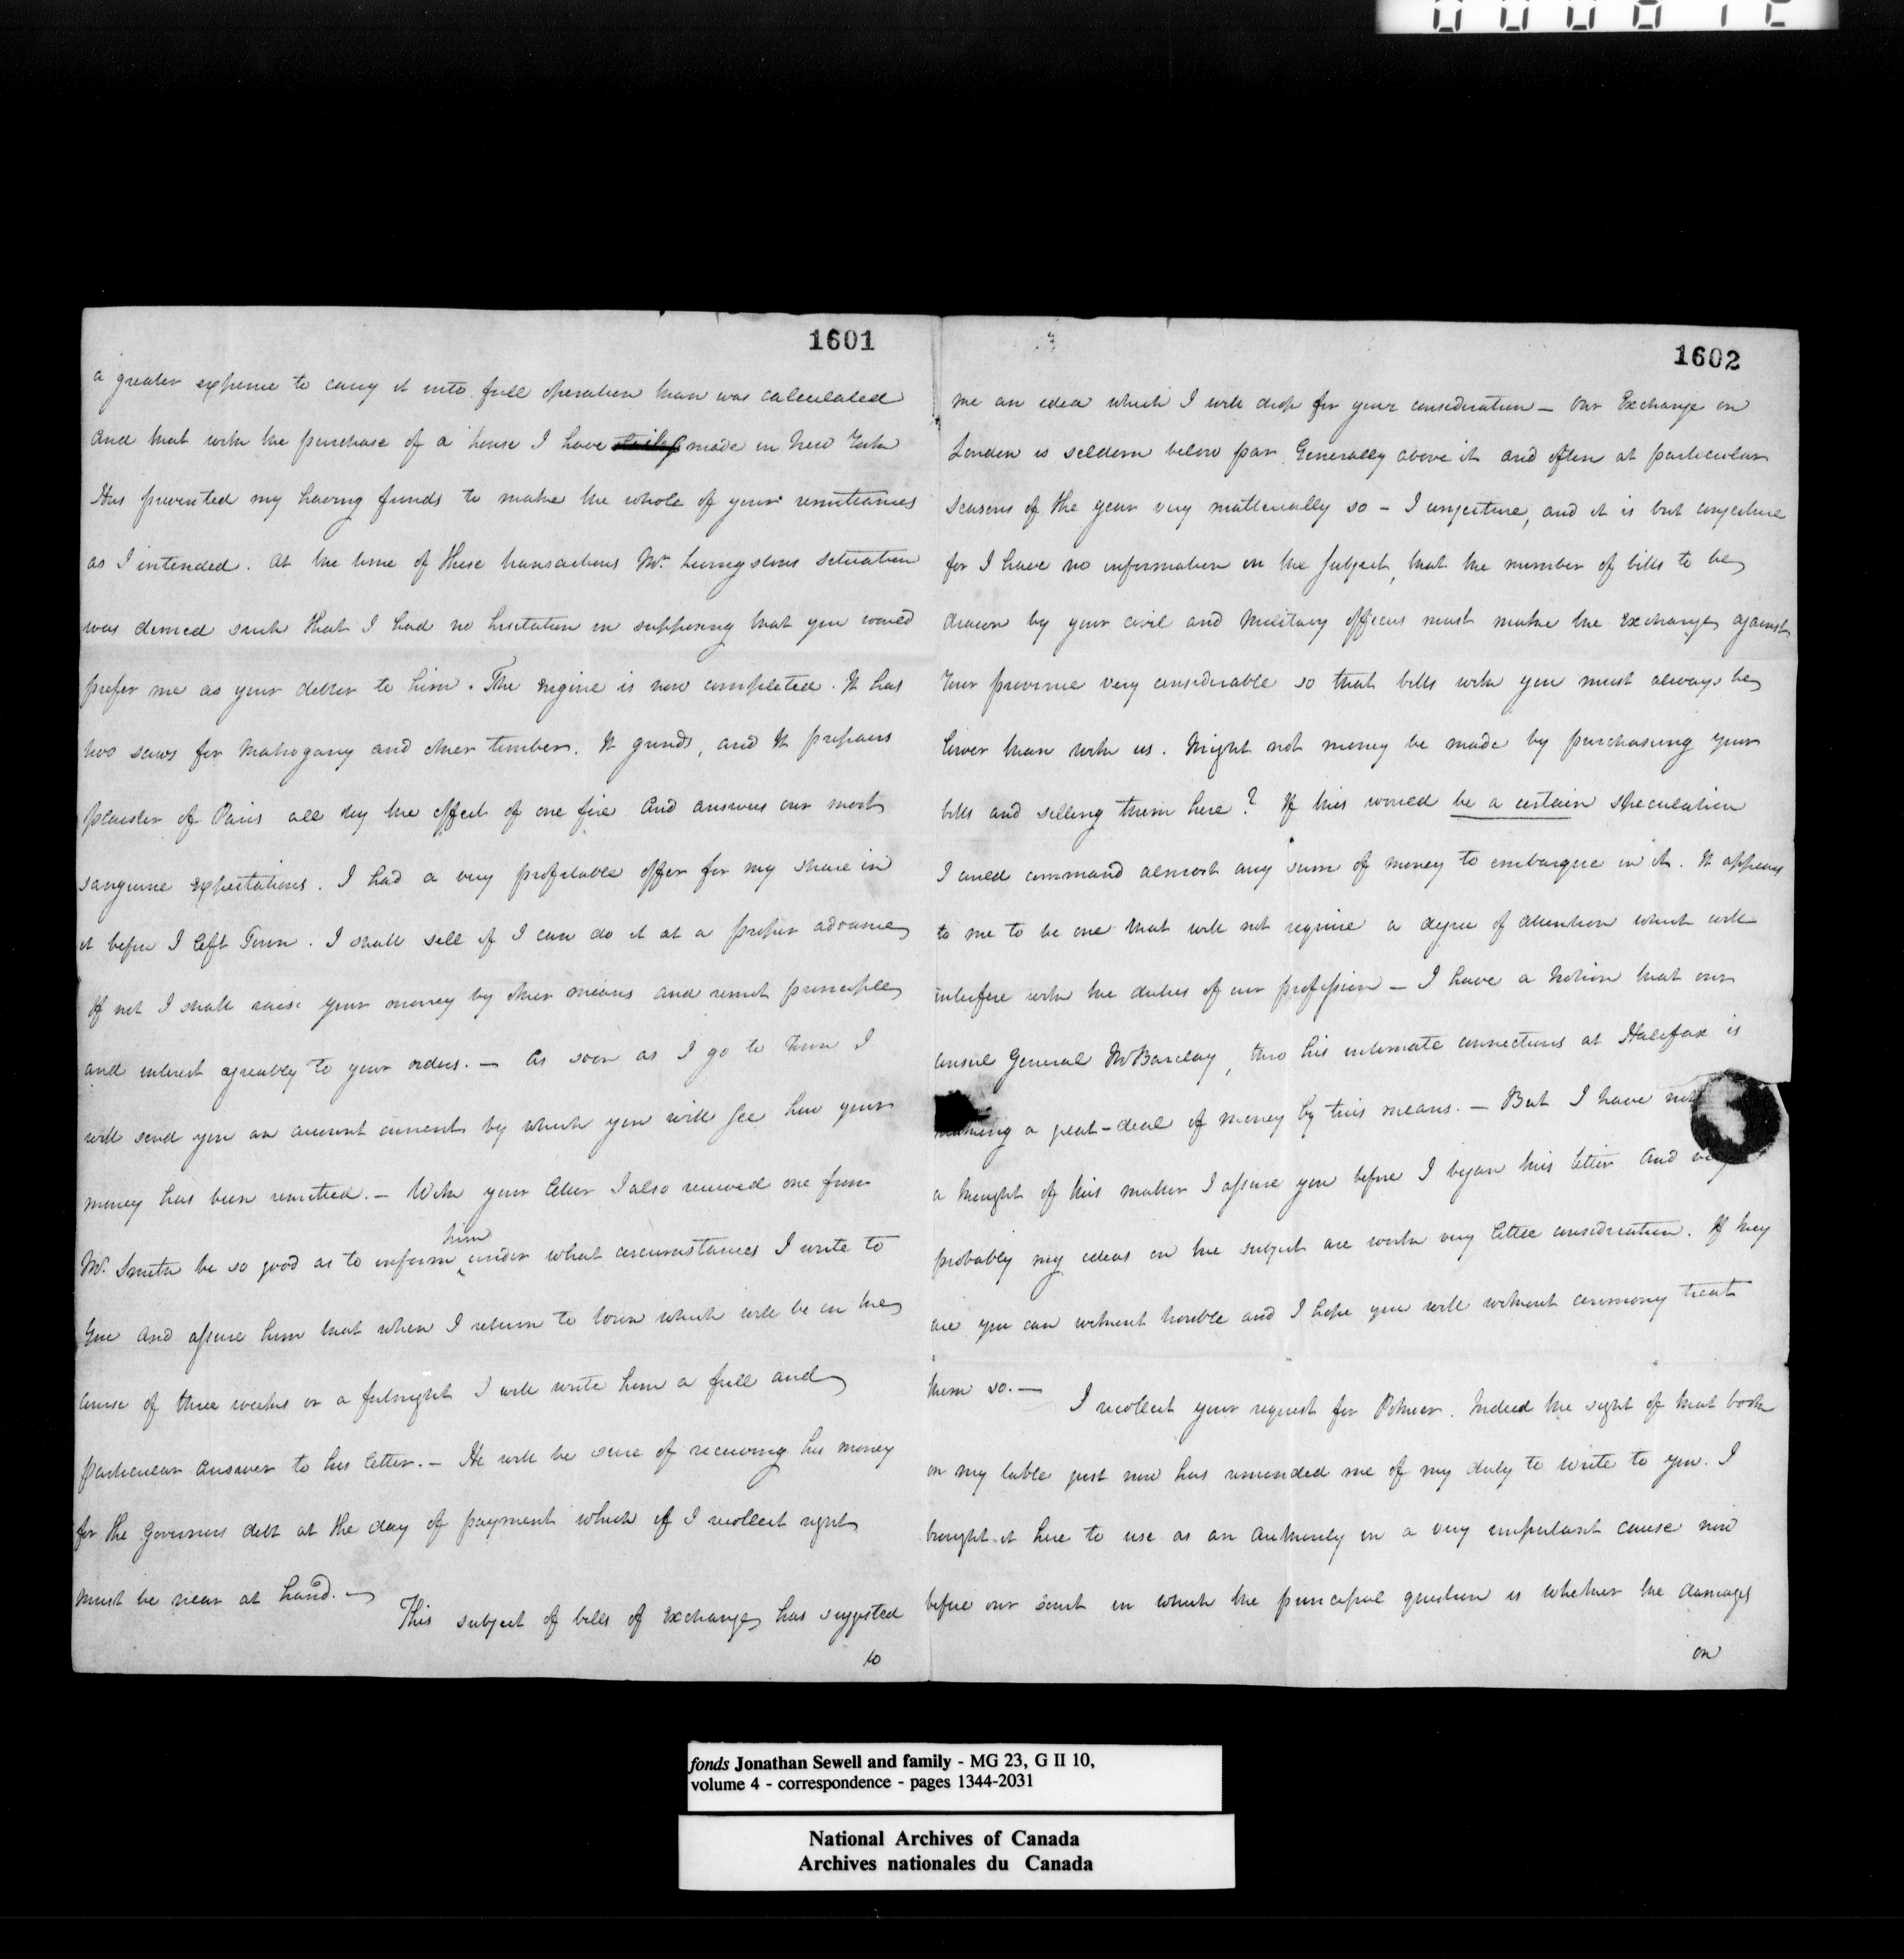 0 0 0 8 1 2
1601
a greater expence to carry it into full operation than was calculated
and that with the purchase of a house I have made in New York
Has prevented my having funds to make the whole of your remittances
as I intended. At the time of these transactions Mr. Livingstons situation
was deemed such that I had no hesitation in supposing that you would
prefer me as your debtor to him. The engine is now completed. It has
two saws for Mahogany and other timber. It grinds, and It prepares
plaister of Paris all by the effect of one fire and answers our most
sanguine expectations. I had a very profitable offer for my share in
it before I left Town. I shall sell if I can do it at a proper advance
If not I shall raise your money by other means and remit principle
and interest agreably to your orders. — As soon as I go to town I
will send you an account current by which you will see how your
money has been remitted. — With your letter I also received one from
him
Mr. Smith be so good as to inform ‸ under what circumstances I write to
You and assure him that when I return to town which will be in the
course of three weeks or a fortnight I will write him a full and
particular answer to his letter. — He will be sure of receiving his money
for the Governors debt at the day of payment which if I recollect right
must be near at hand. —
This subject of bills of exchange has suggested
to
1602
me an idea which I will drop for your consideration — Our Exchange on
London is seldom below par. Generally above it and often at particular
seasons of the year very matterially so — I conjecture, and it is but conjecture
for I have no information on the subject, that the number of bills to be
drawn by your civil and Military officers must make the exchange against
Your province very considerable so that bills with you must always be
lower than with us. Might not money be made by purchasing your
bills and selling them here? If this would be a certain speculation
I could command almost any sum of money to embarque in it. It appears
to me to be one that will not require a degree of attention which will
interfere with the duties of our profession — I have a Notion that our
consul General Mr Barclay, thro his intimate connections at Halifax is
making a great-deal of money by this means. — But I have not
a thought of this matter I assure you before I began this letter and very
probably my ideas on the subject are worth very little consideration. If they
are you can without trouble and I hope you will without ceremony treat
them so. —
I recollect your request for Pothier. Indeed the sight of that book
on my table just now has reminded me of my duty to write to you. I
brought it here to use as an authority in a very important cause now
before our court in which the principal question is whether the damages
on
fonds Jonathan Sewell and family - MG 23, G II 10,
volume 4 - correspondence - pages 1344-2031
National Archives of Canada
Archives nationales du Canada